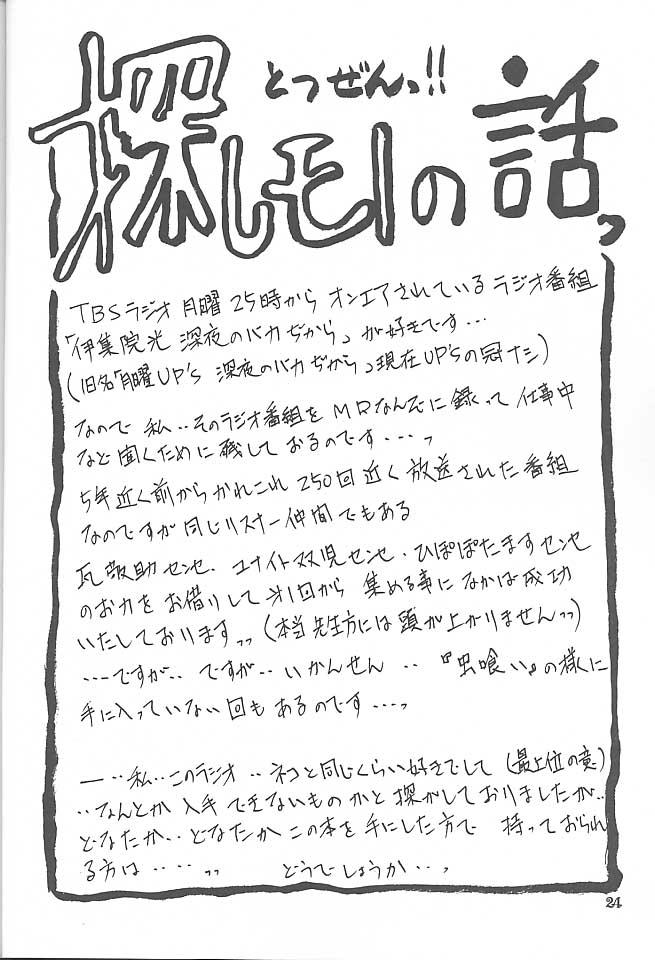 とつぜんっ!!
探しモノの話っ
TBSラジオ 月曜 25時から オンエアされている ラジオ番組
「伊集院光 深夜のバカぢから」が好きです…
(旧名「月曜UP'S 深夜のバカぢから」現在UP'Sの冠ナシ)
なので 私‥そのラジオ番組を MDなんぞに録って 仕事中
など聞くために残しておるのです‥‥っ
5年近く前からかれこれ 250回近く 放送された番組
なのですが 同じリスナー仲間でもある
瓦敬助センセ.ユナイト双児センセ・ひぽぽたますセンセ
のお力をお借りして 第1回から 集める事に なかば成功
いたしておりますっっ (本当先生方には頭が上がりませんっっ)
‥‥ですが‥ ですが‥ いかんせん ‥ 『虫喰い』の様に
手に入っていない回もあるのです‥‥っ
ー‥私‥このラジオ ‥ネコと同じくらい好きでして (最上位の意)
‥なんとか入手できないものかと探がしておりましたが‥
どなたか‥どなたか この本を手にした方で 持っておられ
る方は‥‥っっ どうでしょうか‥っ
24